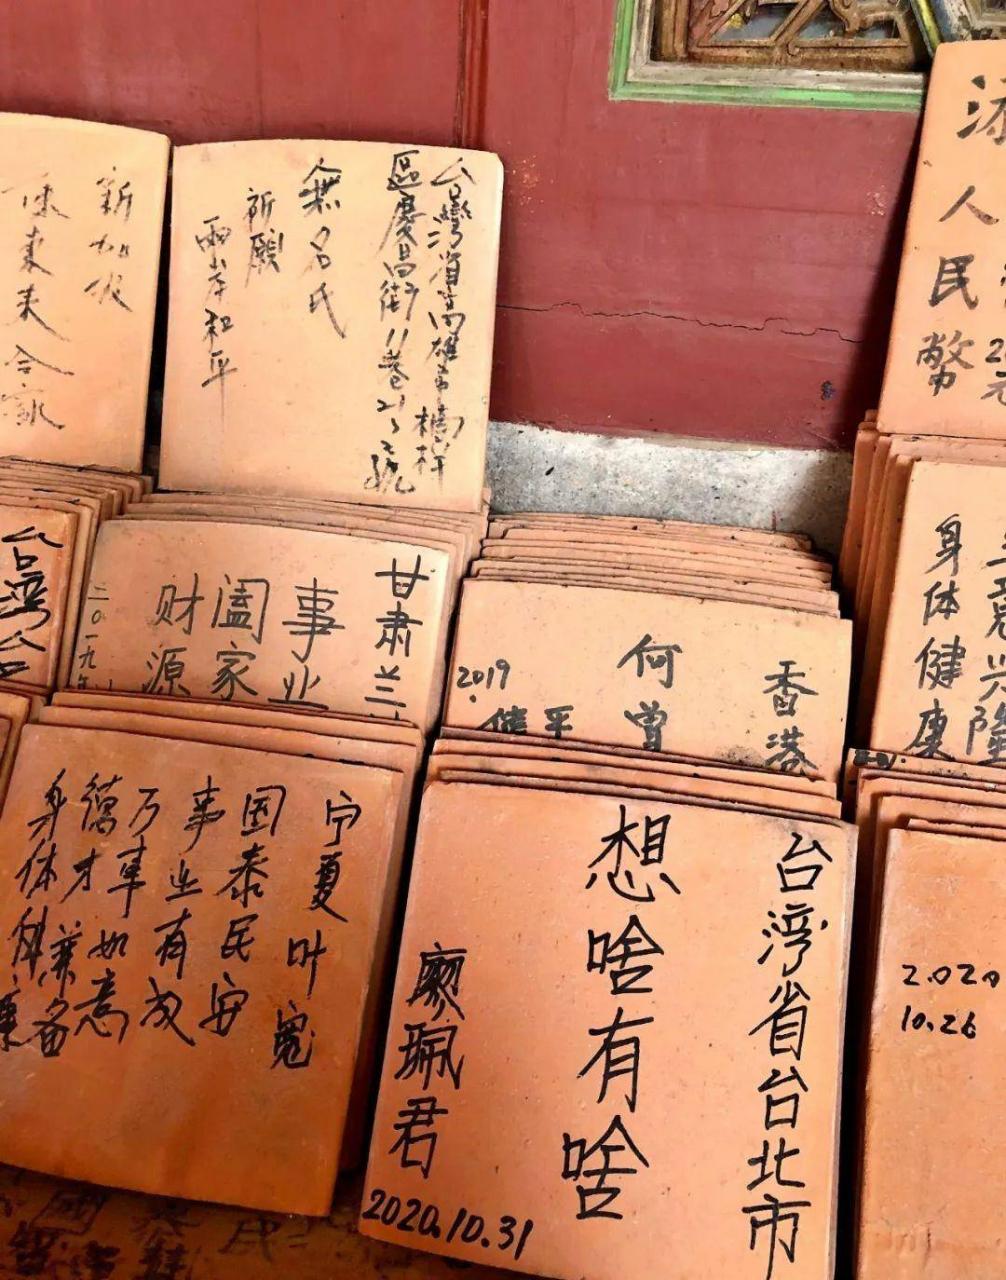 新加坡
台灣省高雄市楠梓
區慶昌街11巷21之2號
無名氏
祈願
兩岸和平
人民幣
台湾
甘肃兰
事业
阖家
财源
二〇一九年
香港
何曾
2019
身体健康
兴隆
宁夏叶宽
国泰民安
事业有成
万事如意
德才兼备
身体健康
台湾省台北市
想啥有啥
廖珮君
2020.10.31
2.020
10.26